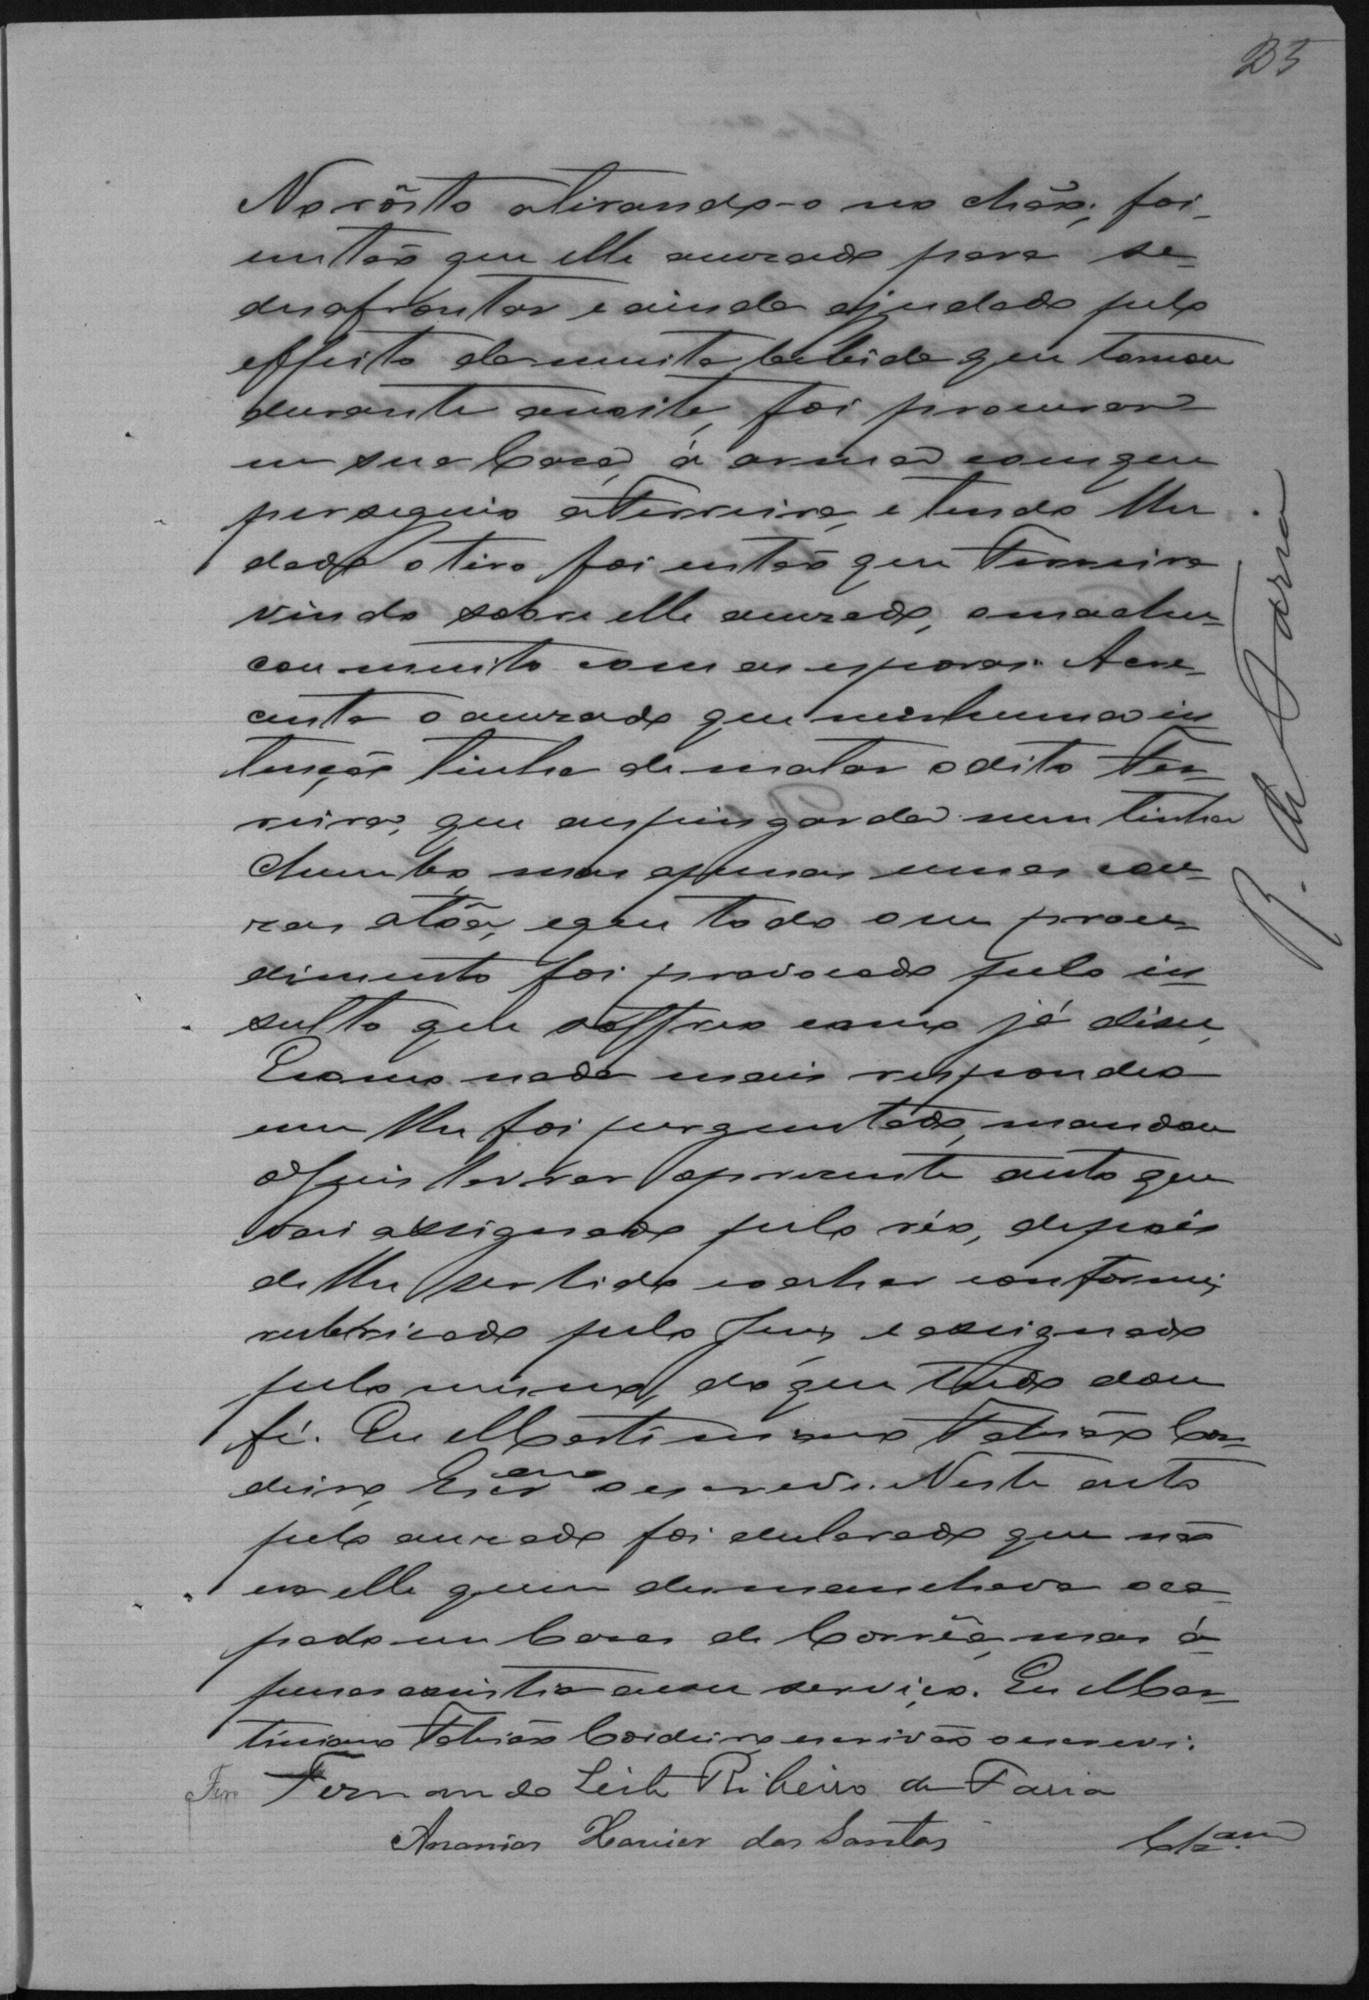 23
No rôsto atirando-o no chão; foi
então que elle accusado para se
desafrontar e ainda ajudado pelo
effeito de muita bebida que tomou
durante a noite, foi procurar
em sua Casa, á arma com que
perseguio a Ferreira, e tendo lhe
dado o tiro foi então que Ferreira
vindo sobre elle accusado, o machu-
cou muito com as esporas. Acres-
centa o accusado que nenhuma in
tenção tinha de matar o dito Fer-
reira, que a espingarda nem tinha
chumbo, mas apenas umas cou-
zas atôa, e que todo o seu proce-
dimento foi provocado pelo in-
sulto que soffreo como já disse,
E como nada mais respondeo
nem lhe foi perguntado, mandou
o Juiz lavrar o presente auto que
vai assignado pelo réo, depois
de lhe ser lido e o achar conforme;
rubricado pelo Juiz e assignado
pelo mesmo, do que tudo dou
fé. Eu Martiniano Fabião Cor-
deiro, Escrᵃᵒ o escrevi. Neste acto
pelo accusado foi declarado que não
era elle quem desmanchava o ca-
pado em Casa de Corrêa, mas á
penas assistia a esse serviço. Eu Mar-
tiniano Fabião Cordeiro escrivão o escrevi.
Fernando Leite Ribeiro de Faria
Ananias Xavier dos Santos
Clzᵃᵐ
R. de Faria
Fer